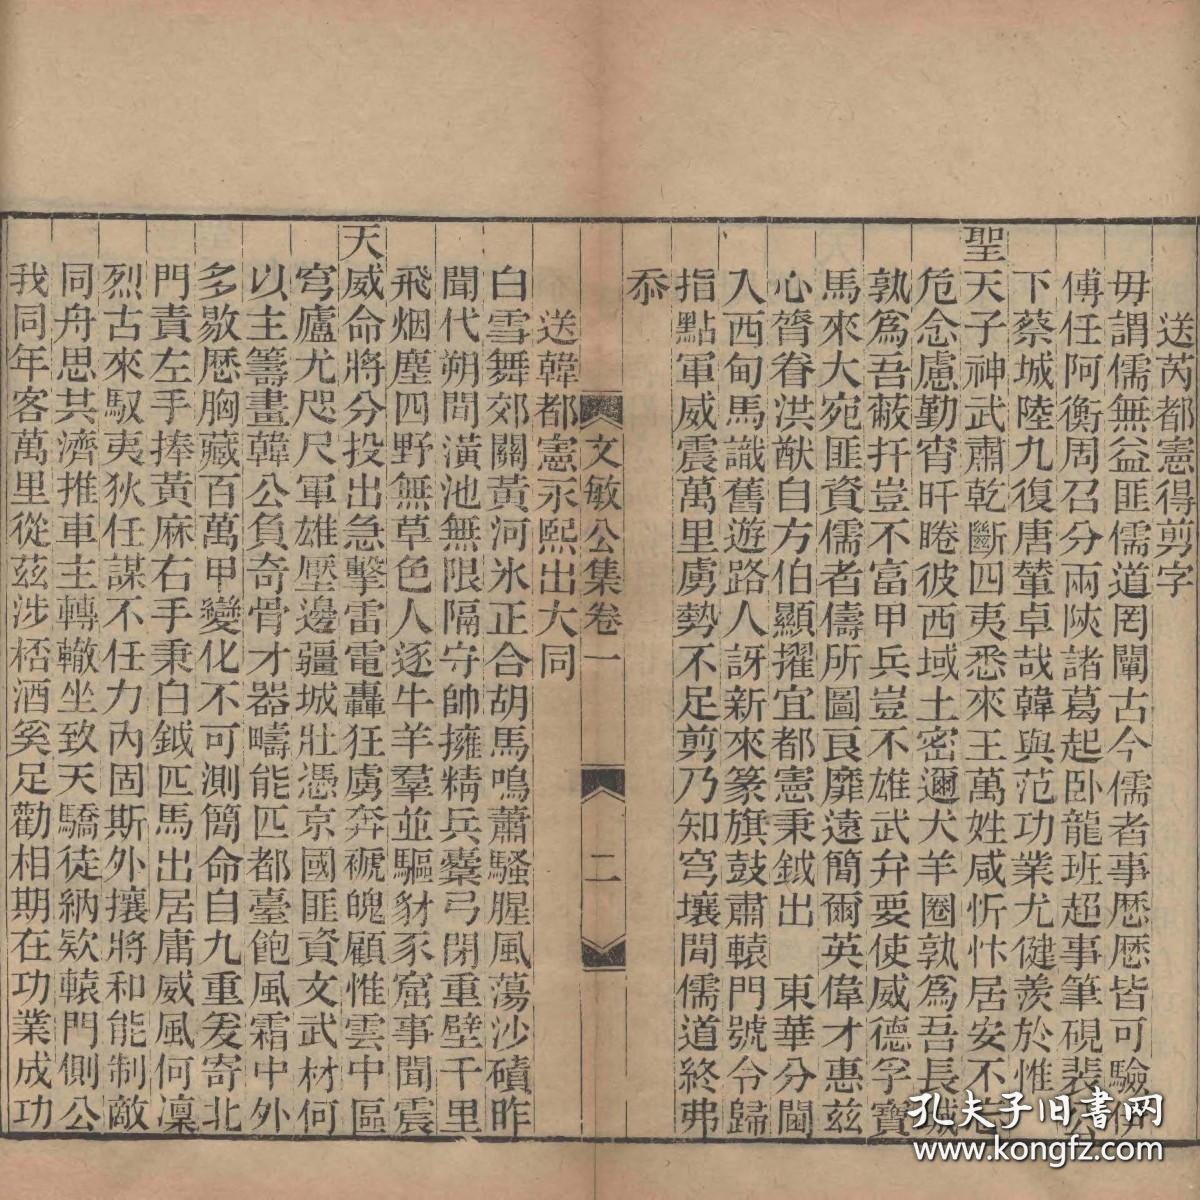 送芮都憲得剪字
毋謂儒無益匪儒道罔闡古今儒者事歷歷皆可驗伊
傅任阿衡周召分兩陝諸葛起卧龍班超事筆硯裴公
下蔡城陸九復唐輦卓哉韓與范功業尤健羨於惟
聖天子神武肅乾斷四夷悉來王萬姓咸忻忭居安不忘
危念慮勤宵旰睠彼西域土密邇犬羊圈孰爲吾長城
孰爲吾蔽扞豈不富甲兵豈不雄武弁要使威德孚寶
馬來大宛匪資儒者儔所圖良靡遠簡爾英偉才惠茲
心膂眷洪猷自方伯顯擢宜都憲秉鉞出　東華分閫
入西甸馬識舊遊路人訝新來篆旗鼓肅轅門號令歸
指點軍威震萬里虜勢不足剪乃知穹壤間儒道終弗
忝
文敏公集卷一
二
送韓都憲永熙出大同
白雪舞郊關黃河氷正合胡馬鳴蕭騷腥風蕩沙磧昨
聞代朔間潢池無限隔守帥擁精兵櫜弓閉重壁千里
飛烟塵四野無草色人逐牛羊羣並驅豺豕窟事聞震
天威命將分投出急擊雷電轟狂虜奔褫魄顧惟雲中區
穹廬尤咫尺軍雄壓邊疆城壯憑京國匪資文武材何
以主籌畫韓公負奇骨才器疇能匹都臺飽風霜中外
多敭歷胸藏百萬甲變化不可測簡命自九重爰寄北
門責左手捧黃麻右手秉白鉞匹馬出居庸威風何凜
烈古來馭夷狄任謀不任力內固斯外攘將和能制敵
同舟思共濟推車主轉轍坐致天驕徒納欵轅門側公
我同年客萬里從茲涉桮酒奚足勸相期在功業成功
孔夫子旧書网
www.kongfz.com